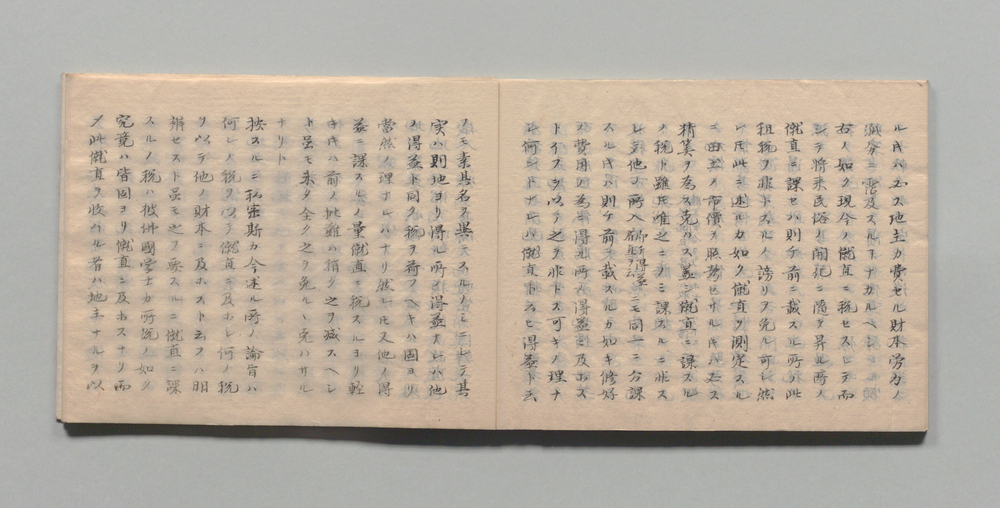 ル時ハ必ス地主カ費セル財本労力ノ
瀦分ニ霑及スル コナカルヘシ
右ノ如ク現今ノ僦直ニ税セスシテ而
シテ将来民俗ノ開化ニ随ヲ昇ル所ノ
僦直ニ課セハ則チ前ニ載スル所ノ此
租税ヲ非トスル ノ謗リヲ免ル可シ然
レ 此ニ述ルカ如ク僦直ヲ測定スル
ニ田土ノ市價ヲ照準セサル 左ス
精算ヲ為ス克ハス蓋シ僦直ニ課スル
ノ税ト雖 唯之ニノミ課スルニ非ス
シ 他ノ所入 即得益 ニモ同一ニ分課
スル ハ則チ前ニ載スルカ如キ修好
ノ費用ノ為ニ得ル所ノ得益ニ及ホス
トイフヲ以テ之ヲ非トス可キノ理ナ
シ何ントナレハ僦直トニヒ得益ト云
フモ素其名ヲ異ニスルノミニシテ其
実ハ則地ヨリ得ル所ノ得益ナレハ他
ノ得益ト同ク税ヲ荷フヘキハ固ヨリ
當然ノ理ナルハナリ然レ 又他ノ得
益ニ課スルノ量僦直ニ税スルヨリ軽
キ ハ前ノ批難ハ稍ク之ヲ減スヘシ
ト雖モ未タ全ク之ヲ免ルヽ克ハサル
ナリト
按スルニ私密斯カ今述ル所ノ論旨ハ
何レノ税ヲ以テ僦直ニ及ホシ何ノ税
ヲ以テ他ノ財本ニ及ホスト云フハ明
辨セスト雖モ之ヲ要スルニ僦直ニ課
スルノ税ハ彼佛國学士カ所説ノ如ク
究竟ハ皆固ヨリ僦直ニ及ホスナリ而
メ此僦直ヲ收ムル者ハ地主ナルヲ以